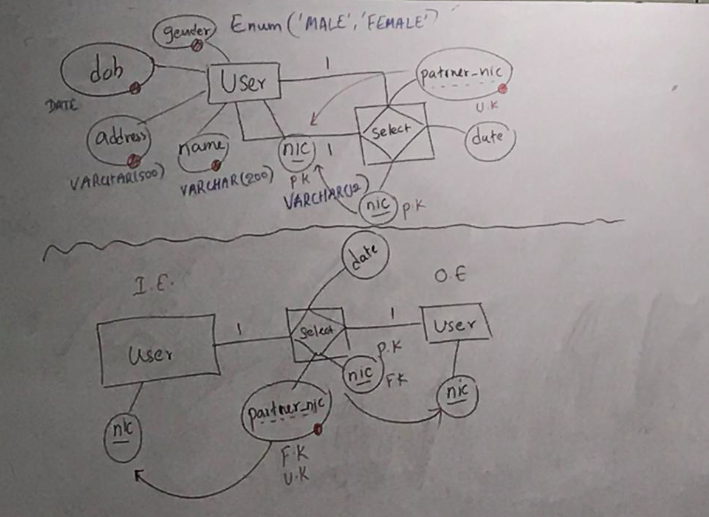 gender Enum ('MALE', 'FEMALE')
dob
DATE
User
1
partner-nic
U.K
address
VARCHAR(500)
name
VARCHAR(200)
nic
P.K
VARCHAR(12)
1
Select
date
nic P.K
date
I.E.
O.E
User
1
Select
1
User
P.K
nic
F.K
nic
nic
partner-nic
F.K
U.K